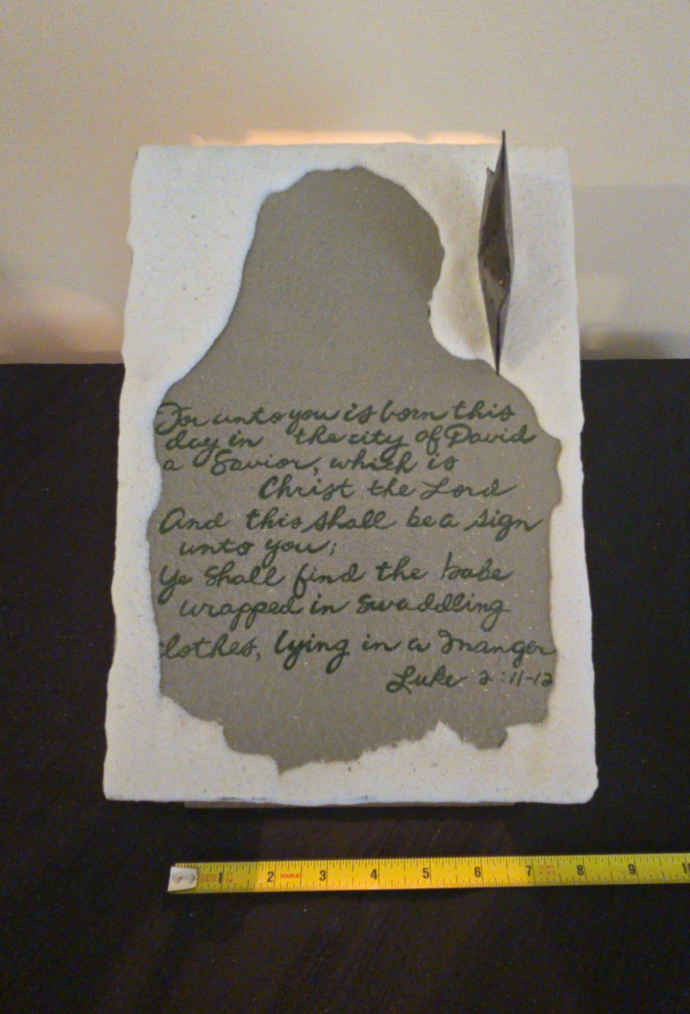 For unto you is born this
day in the city of David
a Savior, which is
Christ the Lord
And this shall be a sign
unto you;
Ye shall find the babe
wrapped in swaddling
clothes, lying in a manger
Luke 2:11-12
1 2 3 4 5 6 7 8 9 10